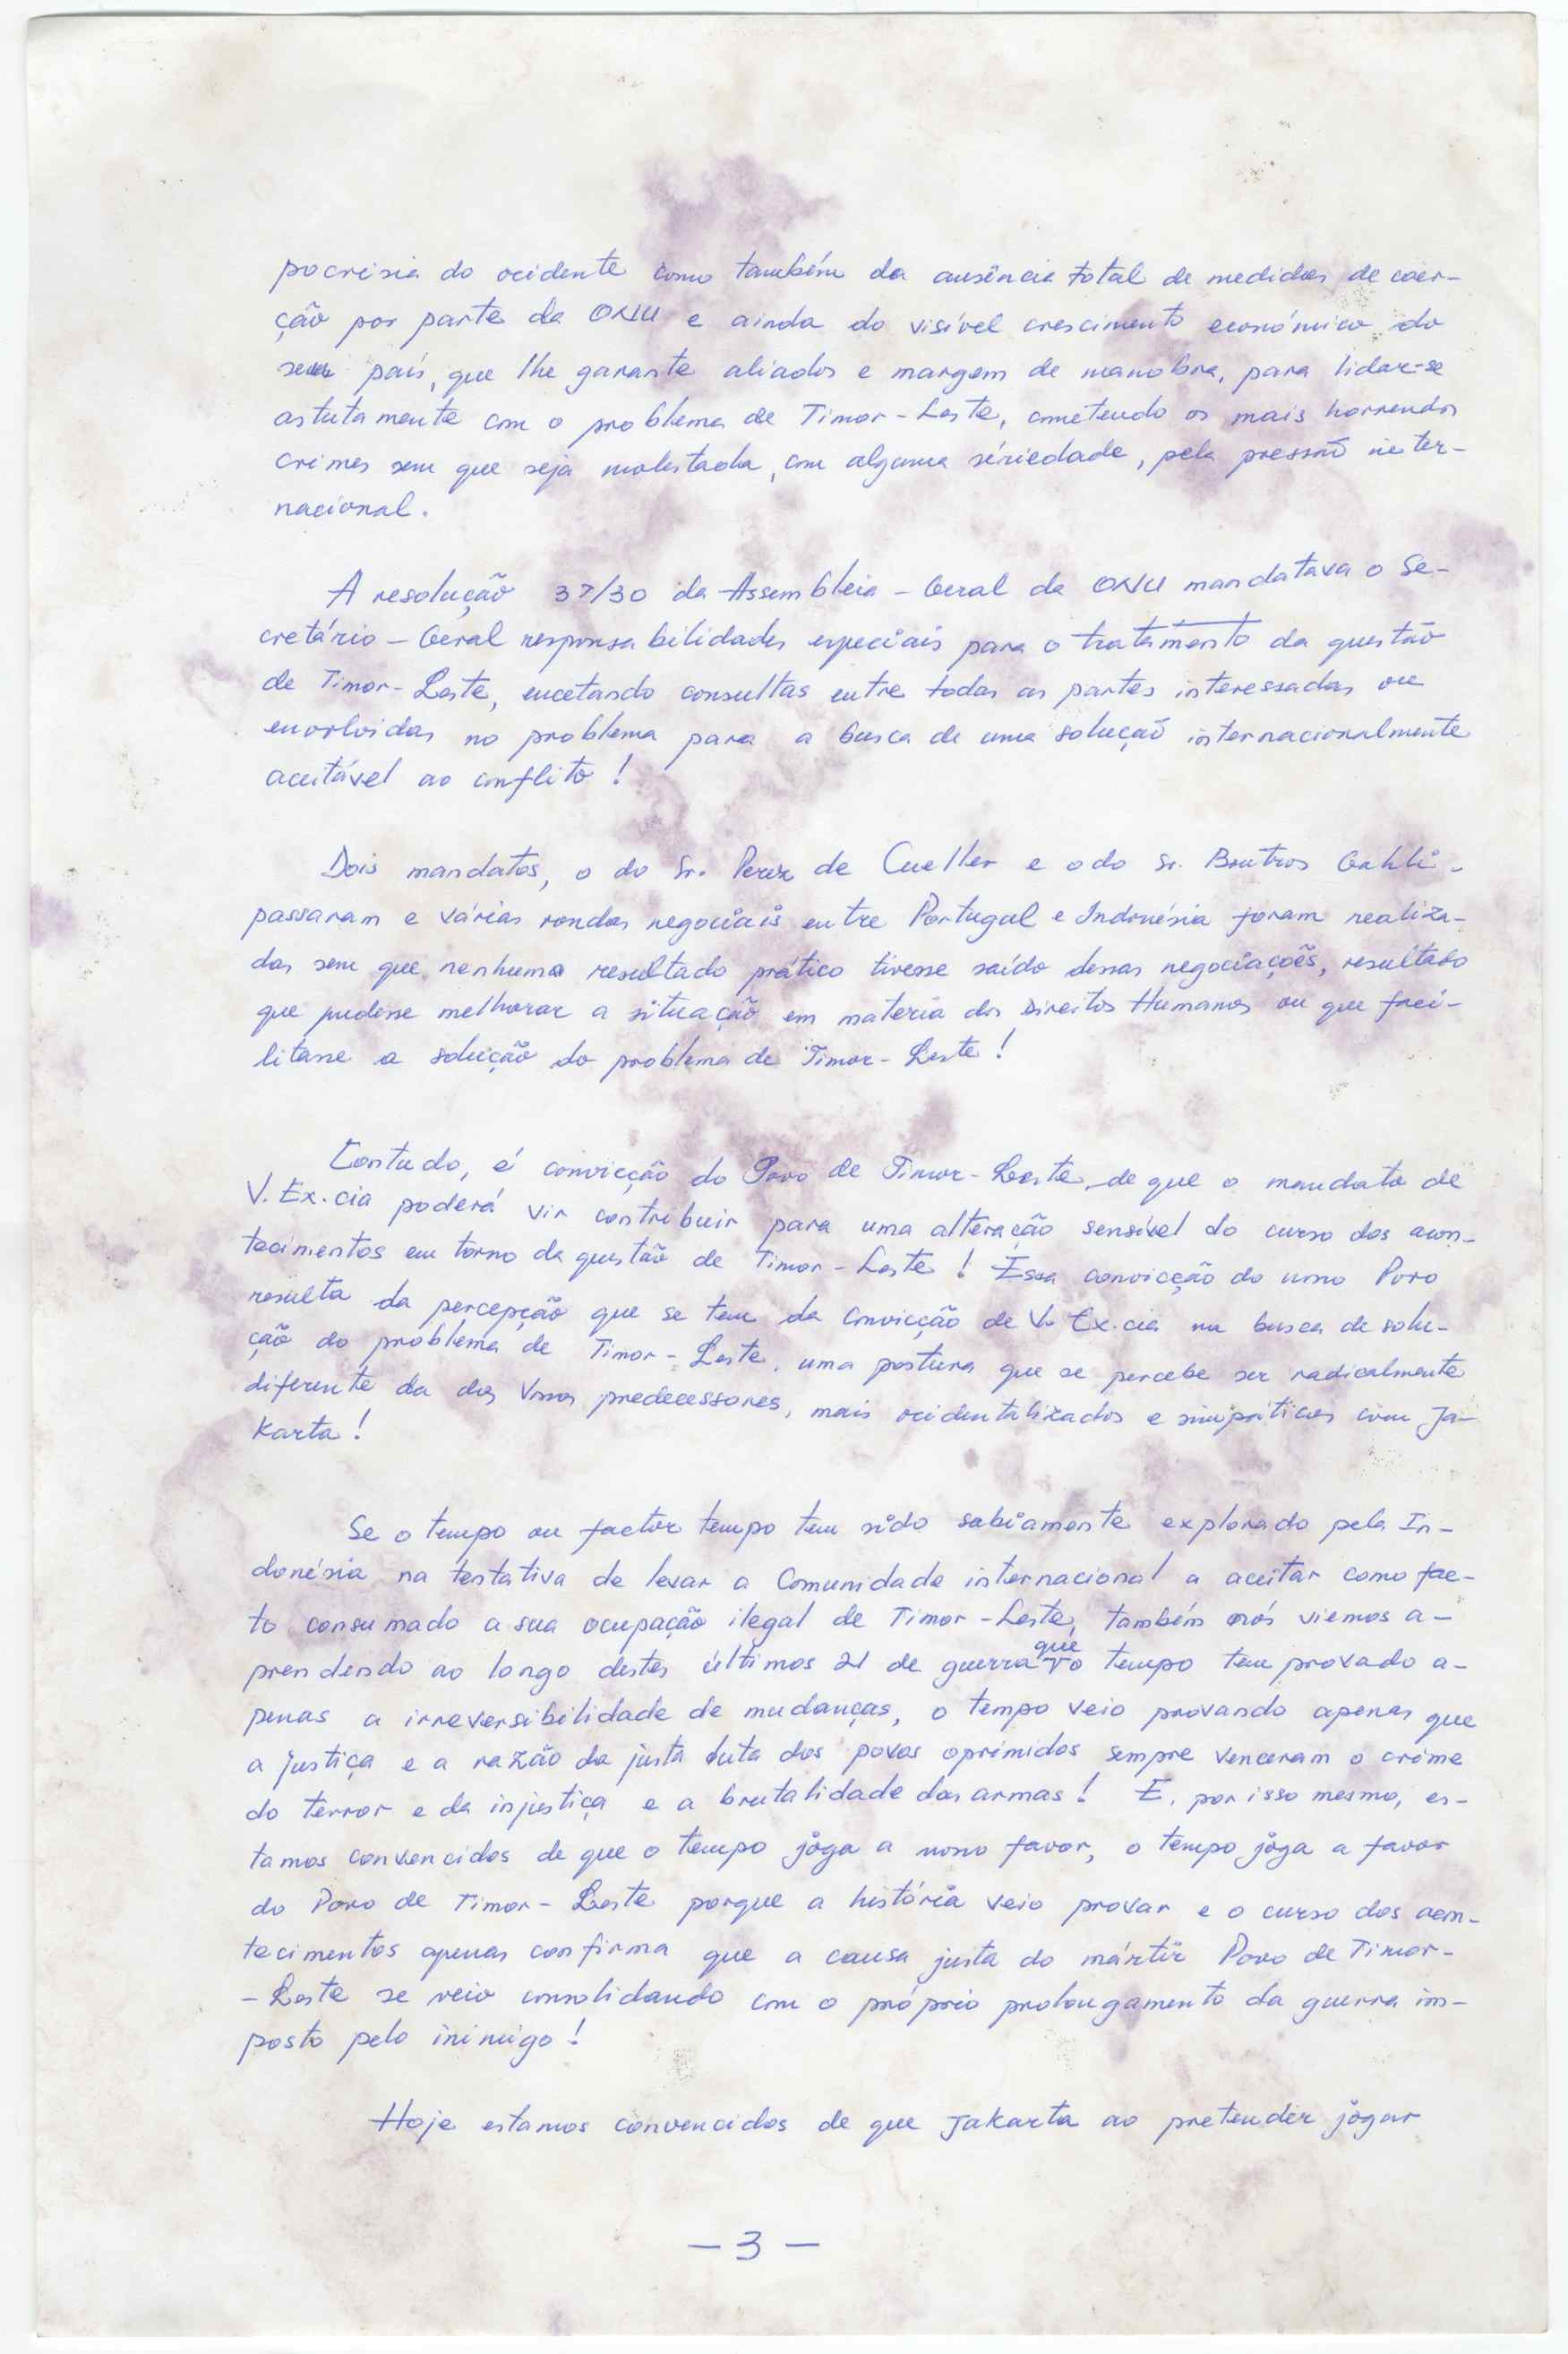 pocrisia do ocidente como também da ausência total de medidas de coer-
ção por parte da ONU e ainda do visível crescimento económico do
seu país, que lhe garante aliados e margem de manobra, para lidar-se
astutamente com o problema de Timor-Leste, cometendo os mais horrendos
crimes sem que seja molestada, com alguma sériedade, pela pressão inter-
nacional.
A resolução 37/30 da Assembleia-Geral da ONU mandatava o Se-
cretário-Geral responsabilidades especiais para o tratamento da questão
de Timor-Leste, encetando consultas entre todas as partes interessadas ou
envolvidas no problema para a busca de uma solução internacionalmente
aceitável ao conflito!
Dois mandatos, o do Sr. Perez de Cueller e o do Sr. Boutros Gahli-
passaram e várias rondas negociais entre Portugal e Indonésia foram realiza-
das sem que nenhuma resultado prático tivesse saído dessas negociações, resultado
que pudesse melhorar a situação em materia dos Direitos Humanos ou que faci-
litasse a solução do problema de Timor-Leste!
Contudo, é convicção do Povo de Timor-Leste, de que o mandato de
V. Ex.cia poderá vir contribuir para uma alteração sensível do curso dos acon-
tecimentos em torno da questão de Timor-Leste! Essa convicção do nosso Povo
resulta da percepção que se tem da convicção de V. Ex.cia na busca de solu-
ção do problema de Timor-Leste, uma postura que se percebe ser radicalmente
diferente da dos Vossos predecessores, mais ocidentalizados e simpáticos com Ja-
karta!
Se o tempo ou factor tempo tem sido sabiamente explorado pela In-
donésia na tentativa de levar a Comunidade internacional a aceitar como fac-
to consumado a sua ocupação ilegal de Timor-Leste, também nós viemos a-
prendendo ao longo destes últimos 21 de guerra que o tempo tem provado a-
penas a irreversibilidade de mudanças, o tempo veio provando apenas que
a justiça e a razão da justa luta dos povos oprimidos sempre venceram o crime
do terror e da injustiça e a brutalidade das armas! E, por isso mesmo, es-
tamos convencidos de que o tempo joga a nosso favor, o tempo joga a favor
do Povo de Timor-Leste porque a história veio provar e o curso dos acon-
tecimentos apenas confirma que a causa justa do mártir Povo de Timor-
-Leste se veio consolidando com o próprio prolongamento da guerra im-
posto pelo inimigo!
Hoje estamos convencidos de que Jakarta ao pretender jogar
- 3 -